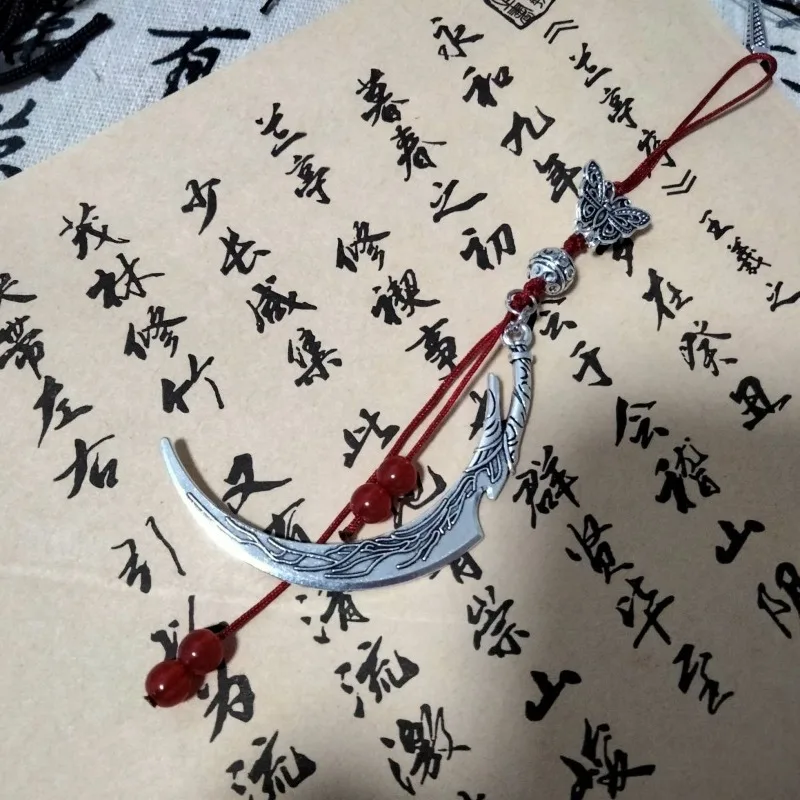 《兰亭序》王羲之
永和九年岁在癸丑
暮春之初会于会稽山阴
兰亭修禊事也群贤毕至
少长咸集此地有崇山
茂林修竹又有清流激
带左右引以为流